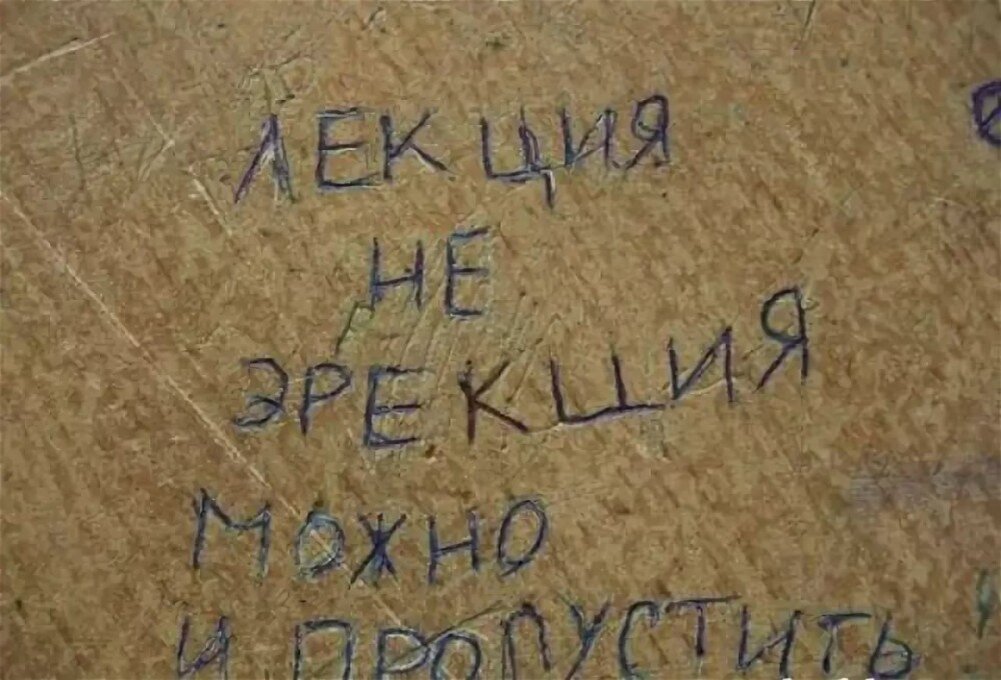 ЛЕКЦИЯ
НЕ
ЭРЕКЦИЯ
МОЖНО
И ПРОПУСТИТЬ